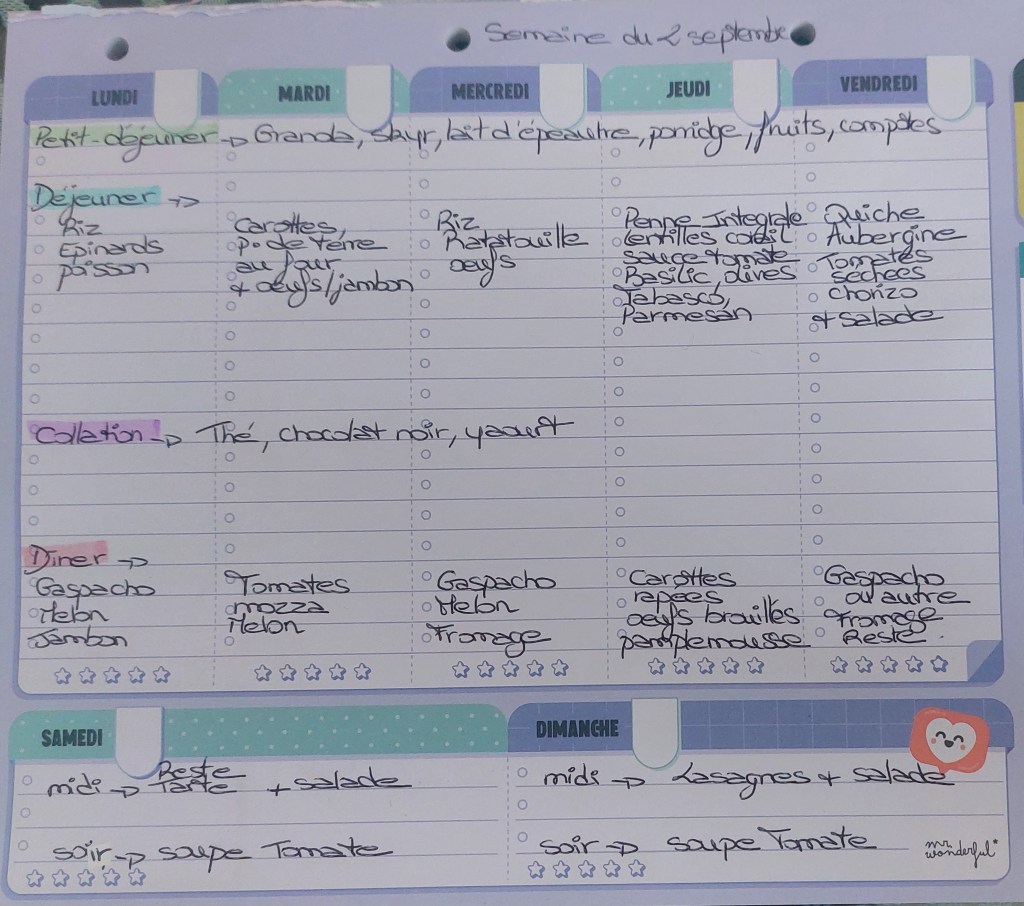 Semaine du 2 septembre
LUNDI
MARDI
MERCREDI
JEUDI
VENDREDI
Petit-déjeuner → Granola, skyr, lait d'épeautre, porridge, fruits, compotes
Déjeuner →
Riz
Epinards
poisson
Carottes,
p. de terre
au four
+ oeufs/jambon
Riz
Ratatouille
oeufs
Penne Integrale
lentilles corail
sauce tomate
Basilic, olives
Tabasco,
Parmesan
Quiche
Aubergine
Tomates
séchées
chorizo
+ salade
Collation → Thé, chocolat noir, yaourt
Diner →
Gaspacho
Melon
Jambon
Tomates
mozza
Melon
Gaspacho
Melon
Fromage
Carottes
rapées
oeufs brouillés
pamplemousse
Gaspacho
ou autre
Fromage
Reste.
SAMEDI
midi → Reste
Tarte + salade
soir → soupe Tomate
DIMANCHE
midi → Lasagnes + salade
soir → soupe Tomate
mr.
wonderful*